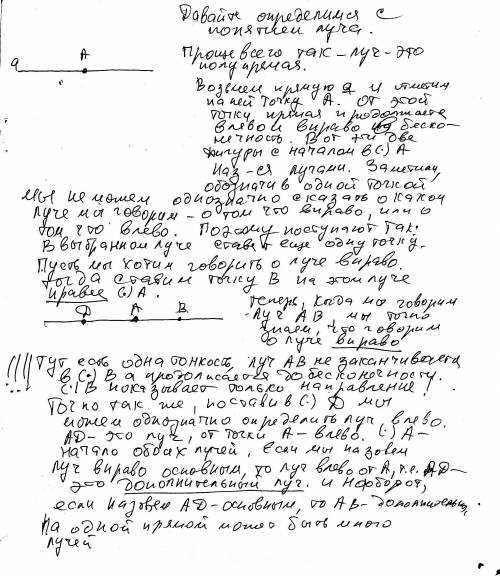 Давайте определимся с
понятием луча.
Проще всего так – луч – это
полупрямая.
a
A
Возьмем прямую a и отметим
на ней точку A. От этой
точки прямая продолжается
влево и вправо в беско-
нечность. Вот эти две
фигуры с началом в (·) A
наз-ся лучами. Заметим,
обозначив одной точкой,
мы не можем однозначно сказать о каком
луче мы говорим – о том что вправо, или о
том что влево. Поэтому поступают так:
В выбранном луче ставят еще одну точку.
Пусть мы хотим говорить о луче вправо.
Тогда ставим точку B на этом луче
правее (·) A.
D A B
Теперь, когда мы говорим
луч AB, мы точно
знаем, что говорим
о луче вправо
!!!! Тут есть одна тонкость, луч AB не заканчивается
в (·) B а продолжается до бесконечности.
(·) B показывает только направление!
Точно так же, поставив (·) D мы
можем однозначно определить луч влево.
AD – это луч, от точки A – влево. (·) A –
начало обоих лучей, если мы назовем
луч вправо основным, то луч влево от A, т.е. AD –
это дополнительный луч. и наоборот,
если назовем AD – основным, то AB – дополнительн.
На одной прямой может быть много
лучей